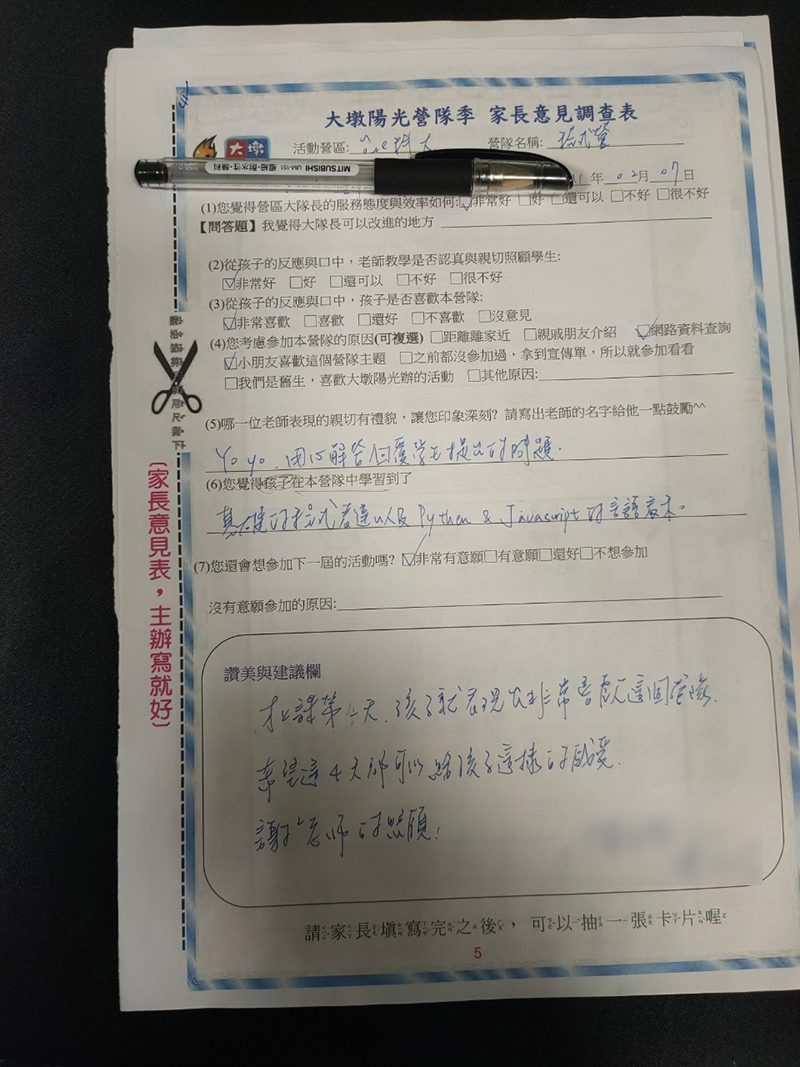 大墩陽光營隊季 家長意見調查表
大墩 活動營區: 科大 營隊名稱: 程式營
MITSUBISHI UM-151 極細·耐水性·顏料
11年 02月 07日
(1)您覺得營區大隊長的服務態度與效率如何:☑非常好 □好 □還可以 □不好 □很不好
【問答題】我覺得大隊長可以改進的地方
(2)從孩子的反應與口中,老師教學是否認真與親切照顧學生:
☑非常好 □好 □還可以 □不好 □很不好
(3)從孩子的反應與口中,孩子是否喜歡本營隊:
☑非常喜歡 □喜歡 □還好 □不喜歡 □沒意見
(4)您考慮參加本營隊的原因(可複選) □距離離家近 □親戚朋友介紹 ☑網路資料查詢
☑小朋友喜歡這個營隊主題 □之前都沒參加過,拿到宣傳單,所以就參加看看
□我們是舊生,喜歡大墩陽光辦的活動 □其他原因:
(5)哪一位老師表現的親切有禮貌,讓您印象深刻? 請寫出老師的名字給他一點鼓勵^^
Yoyo. 用心解答回覆學生提出的問題.
(6)您覺得孩子在本營隊中學習到了
基礎的程式表達以及 Python & Javascript 的言語
(7)您還會想參加下一屆的活動嗎? ☑非常有意願□有意願□還好□不想參加
沒有意願參加的原因:
讚美與建議欄
才上課第一天, 孩子就表現出非常喜歡這個營隊.
希望這4天都可以給孩子這樣的感覺.
謝謝老師的照顧!
請家長填寫完之後,可以抽一張卡片喔
5
〔家長意見表,主辦寫就好〕